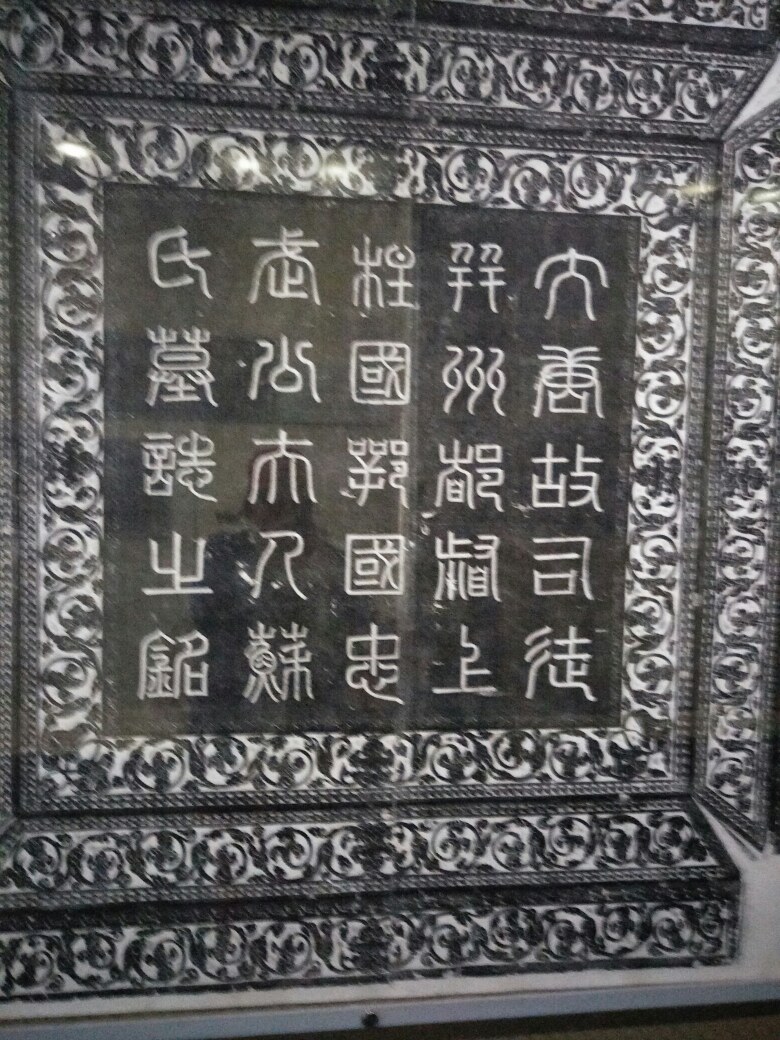 大唐故司徒
并州都督上
柱國鄂國忠
武公夫人蘇
氏墓誌之銘